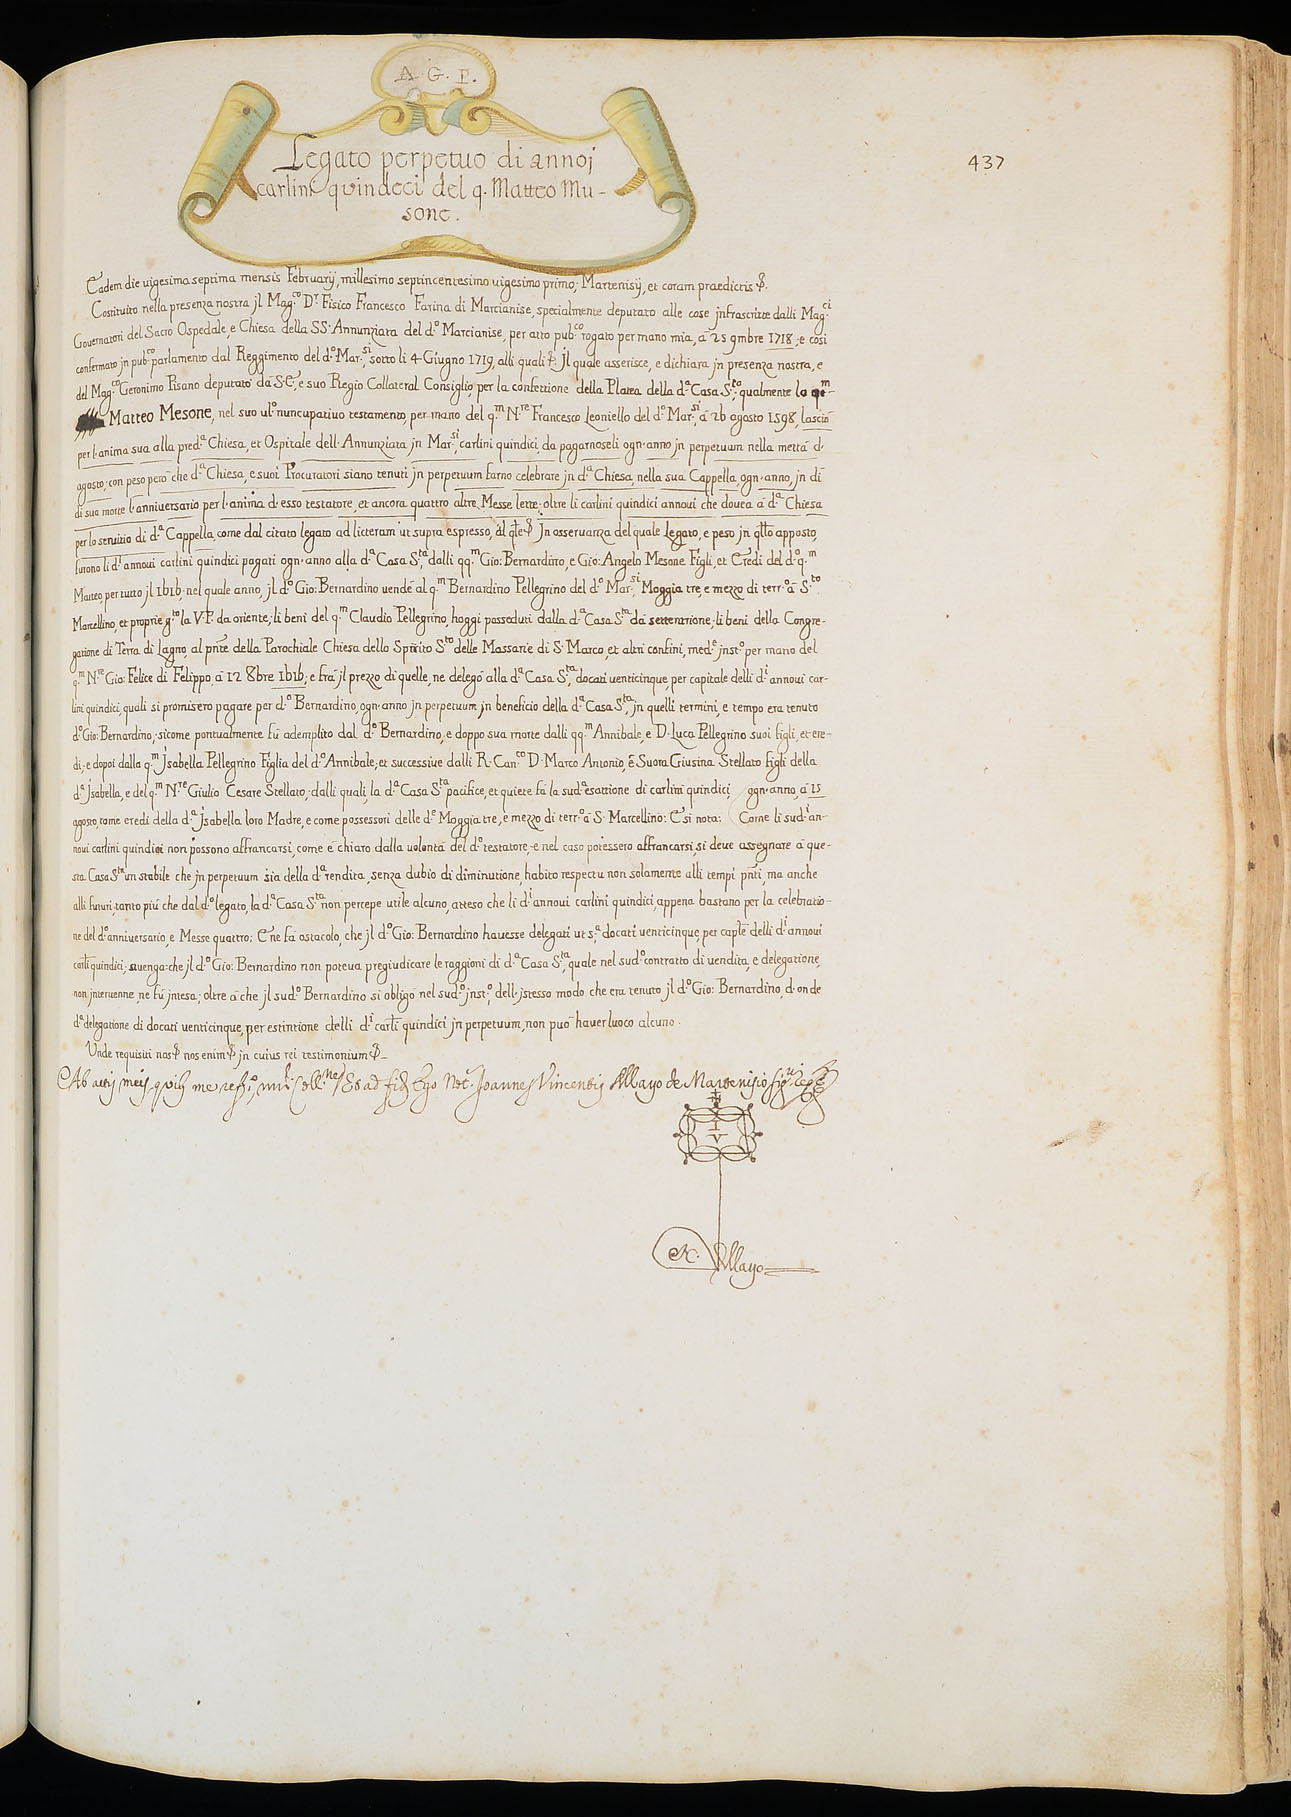 A. G. P.
437
Legato perpetuo di annoi
carlini qvindeci del q. Matteo Mu-
sone.
Eadem die uigesima septima mensis Februarij, millesimo septincentesimo uigesimo primo; Martenisij, et coram praedictis &.
Costituito nella presenza nostra jl Mag.co D.r Fisico Francesco Farina di Marcianise, specialmente deputato alle cose jnfrascritte dalli Mag.ci
Gouernatori del Sacro Ospedale, e Chiesa della SS. Annunziata del d.o Marcianise, per atto pub.co rogato per mano mia, à 25 9mbre 1718, e così
confermato jn pub.co parlamento dal Reggimento del d.o Mar.si sotto li 4 Giugno 1719, alli quali &. Jl quale asserisce, e dichiara jn presenza nostra, e
del Mag.co Geronimo Pisano deputato da S.E. e suo Regio Collateral Consiglio, per la confettione della Platea della d.a Casa S.ta, qualmente lo q.m
Matteo Mesone, nel suo ul.o nuncupatiuo testamento, per mano del q.m N.re Francesco Leoniello del d.o Mar.si, à 26 agosto 1598, lasciò
per l'anima sua alla pred.a Chiesa, et Ospitale dell'Annunziata jn Mar.si, carlini quindici, da pagarnoseli ogn'anno jn perpetuum nella mettà d'
agosto; con peso però che d.a Chiesa, e suoi Procuratori siano tenuti jn perpetuum farno celebrare jn d.a Chiesa, nella sua Cappella, ogn'anno, jn dì
di sua morte l'anniuersario per l'anima d'esso testatore, et ancora quattro altre Messe lette; oltre li carlini quindici annoui che douea à d.a Chiesa
per lo seruitio di d.a Cappella, come dal citato legato ad licteram ut supra espresso, al qle &. Jn osseruanza del quale Legato, e peso jn qllo apposto,
furono li d.i annoui carlini quindici pagati ogn'anno alla d.a Casa S.ta, dalli qq.m Gio: Bernardino, e Gio: Angelo Mesone Figli, et Eredi del d.o q.m
Matteo per tutto jl 1616; nel quale anno, jl d.o Gio: Bernardino uendè al q.m Bernardino Pellegrino del d.o Mar.si Moggia tre, e mezzo di terr.o à S.to
Marcellino, et proprie g.to la V.P. da oriente; li beni del q.m Claudio Pellegrino, hoggi posseduti dalla d.a Casa S.ta da settentrione; li beni della Congre-
gatione di Terra di Lagno, al pnte della Parochiale Chiesa dello Spirito S.to delle Massarie di S. Marco, et altri confini, med.e jnst.o per mano del
q.m N.re Gio: Felice di Felippo, à 12 8bre 1616; e frà jl prezzo di quelle, ne delegò alla d.a Casa S.ta, docati uenticinque, per capitale delli d.i annoui car-
lini quindici, quali si promisero pagare per d.o Bernardino ogn'anno jn perpetuum jn beneficio della d.a Casa S.ta, jn quelli termini, e tempo era tenuto
d.o Gio: Bernardino; sicome pontualmente fù adempiito dal d.o Bernardino, e doppo sua morte dalli qq.m Annibale, e D. Luca Pellegrino suoi figli, et ere-
di; e dopoi dalla q.m Jsabella Pellegrino Figlia del d.o Annibale; et successiue dalli R. Can.co D. Marco Antonio, e Suora Giusina Stellato figli della
d.a Jsabella, e del q.m N.re Giulio Cesare Stellato; dalli quali, la d.a Casa S.ta pacifice, et quiete fà la sud.a esattione di carlini quindici ogn'anno, à 15
agosto, come eredi della d.a Jsabella loro Madre, e come possessori delle d.e Moggia tre, e mezzo di terr.o à S. Marcellino: E si nota: Come li sud.i an-
noui carlini quindici non possono affrancarsi, come è chiaro dalla uolontà del d.o testatore, e nel caso potessero affrancarsi, si deue assegnare à que-
sta Casa S.ta un stabile che jn perpetuum sia della d.a rendita, senza dubio di diminutione, habito respectu non solamente alli tempi pnti, ma anche
alli futuri, tanto più che dal d.o legato, la d.a Casa S.ta non percepe utile alcuno, atteso che li d.i annoui carlini quindici, appena bastano per la celebratio-
ne del d.o anniuersario, e Messe quattro; E ne fà ostacolo, che jl d.o Gio: Bernardino hauesse delegati ut s.a docati uenticinque, per captle delli d.i annoui
carli quindici; auenga che jl d.o Gio: Bernardino non poteua pregiudicare le raggioni di d.a Casa S.ta, quale nel sud.o contratto di uendita, e delegatione,
non jnteruenne, ne fù jntesa; oltre à che jl sud.o Bernardino si obligò nel sud.o jnst.o, dell'jstesso modo che era tenuto jl d.o Gio: Bernardino, d'onde
d.a delegatione di docati uenticinque, per estintione delli d.i carli quindici jn perpetuum, non può hauer luoco alcuno.
Unde requisiti nos & nos enim & jn cuius rei testimonium &
Ab actis meis Et ad fid. Ego Not.s Joannes Vincentius Allayo de Martenisio
I V
N. Allayo